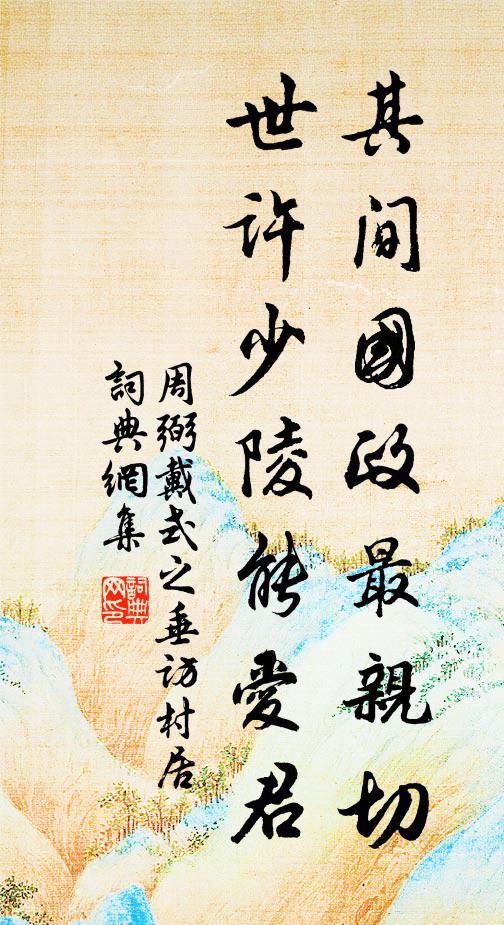 其间國政最親切
世许少陵能愛君
周弼戴式之垂访村居
詞典網集
詞典網印